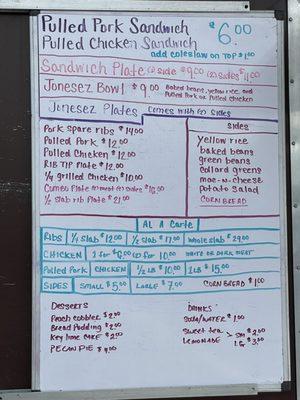 Pulled Pork Sandwich
Pulled Chicken Sandwich
$6.00
add coleslaw on top $1.00
Sandwich Plate (1) side $9.00 (2) sides $11.00
Jonesez Bowl $9.00 Baked beans, yellow rice, and
Pulled Pork or Pulled Chicken
Jonesez Plates comes with (2) sides
Pork spare ribs $14.00
Pulled Pork $12.00
Pulled Chicken $12.00
Rib Tip Plate $12.00
1/4 grilled Chicken $10.00
Combo Plate (2) meat (2) sides $16.00
1/2 slab rib Plate $21.00
Sides
yellow rice
baked beans
green beans
collard greens
mac-n-cheese
potato salad
CORN BREAD
Al A Carte
Ribs 1/4 slab $12.00 1/2 slab $17.00 whole slab $29.00
Chicken 1 for $6.00 (2) for 10.00 white or dark meat
Pulled Pork Chicken 1/2 LB $10.00 1 LB $15.00
Sides Small $5.00 Large $7.00 Corn Bread $1.00
Desserts
Peach cobbler $5.00
Bread Pudding
Key lime cake
PECAN PIE
Drinks
Soda/Water $1.00
Sweet tea
Lemonade
SM $2.00
LG $3.00